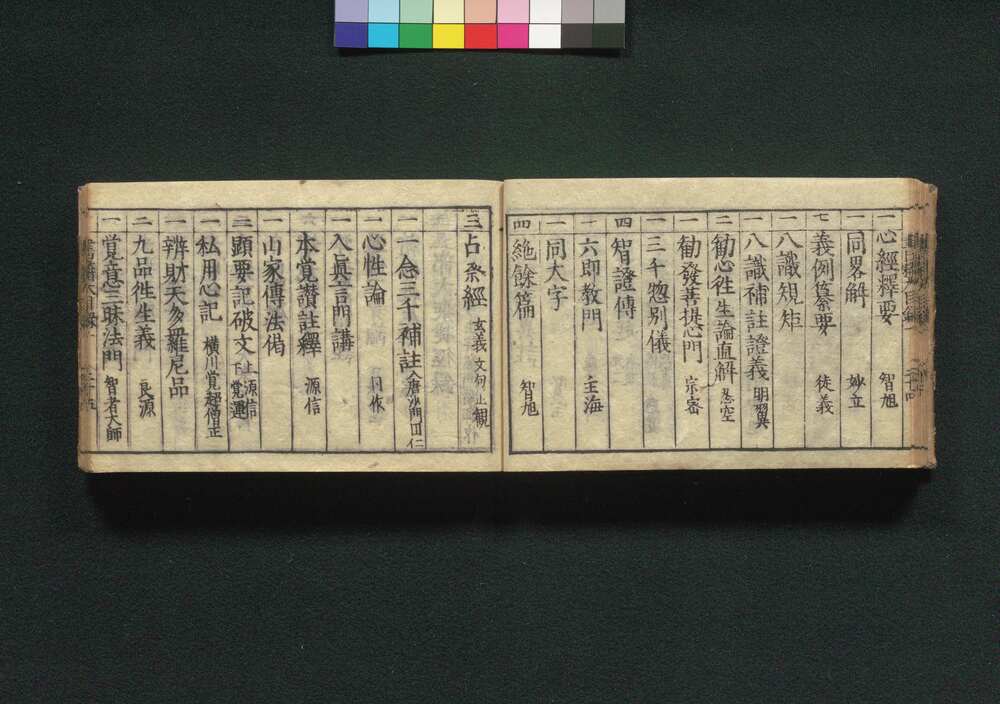 一 心經釋要 智旭
一 同畧解 妙立
七 義例纂要 從義
一 八識規矩
一 八識補註證義 明昱
二 勧心徃生論直解 慧空
一 勧發菩提心門 宗密
一 三千惣別儀
四 智證傳
一 六即教門 主海
一 同大字
四 絶餘篇 智旭
三 占察經 玄義 文句 止観
一 一念三千補註 唐沙門 仁
一 心性論 同作
一 入眞言門講
一 本覚讃註釋 源信
一 山家傳法偈
二 顕要記破文 上源信 下覚運
一 私用心記 横川覚超僧正
一 辨財天多羅尼品
二 九品徃生義 良源
一 覚意三昧法門 智者大師